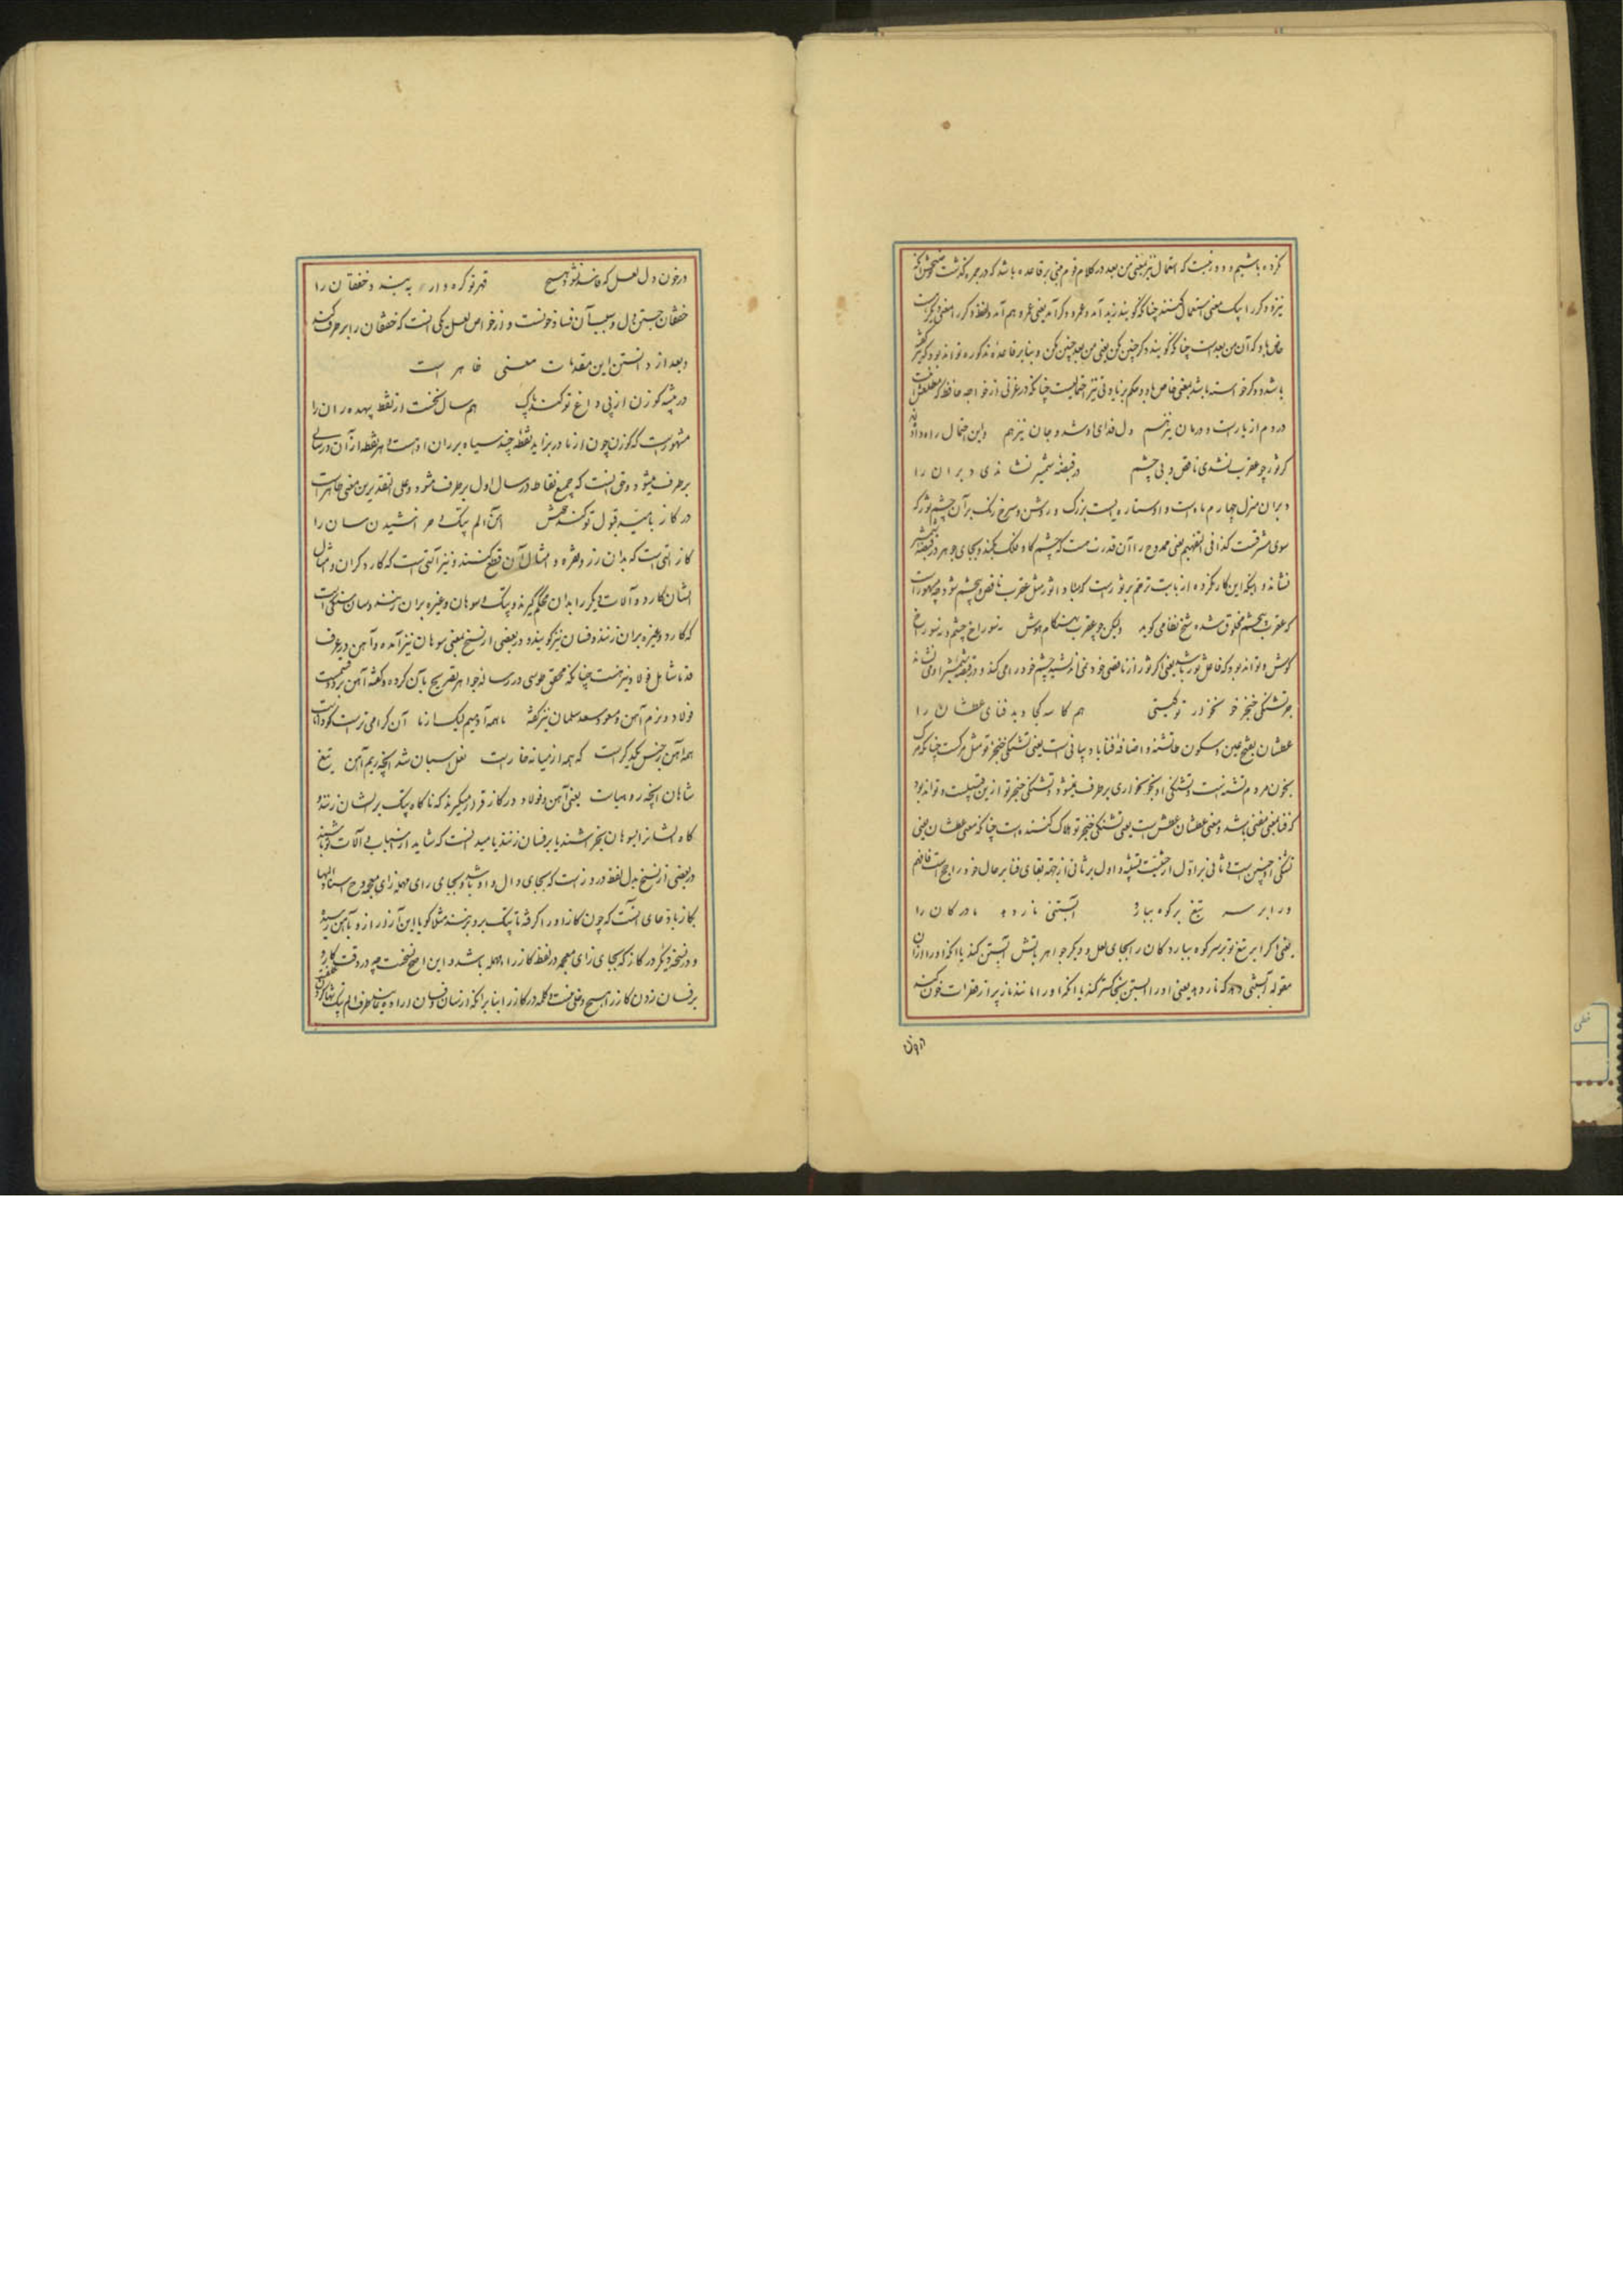 کرده باشیم و دور نیست که استعمال نیز بمعنی من بعد در کلام قوم مبنی بر قاعده باشد که در مجره گذشت
نیز و دگر را بیک معنی استعمال کنند چنانکه گویند زید آمد و عمرو دگر آمد یعنی عمرو هم آمد و لفظ دگر را معنی دیگر است
خاص باو که آن من بعد است چنانکه گویند دگر چنین مکن یعنی من بعد چنین مکن و بنابر قاعده مذکوره تواند بود که نیز گفته
باشد و دگر خواسته باشد بمعنی خاص باو و حکم بزیادتی نیز احتمالیست چنانکه در غزلی از خواجه حافظ که مطلعش
دردم از یارست و درمان نیز هم دل فدای او شد و جان نیز هم و این احتمال راه دارد
گر ثور چو عقرب نشدی ناقص و بی چشم در قبضه شمشیر نشاندی دبران را
دبران منزل چهارم ماه است و او ستاره ایست بزرگ و روشن و سرخ رنگ بر آن چشم ثور که
سوی مشرقست کذا فی التفهیم یعنی ممدوح را آن قدرت هست که چشم گاو فلک بکند و بجای جوهر در قبضه شمشیر
نشاند و اینکه این کار نکرده از بابت ترحم بر ثور است که مبادا ثور مثل عقرب ناقص و بیچشم شود چه مشهور است
که عقرب بیچشم مخلوق شده شیخ نظامی گوید ولیکن چو عقرب بهنگام هوش نه سوراخ چشم و نه سوراخ
گوش و تواند بود که فاعل ثور باشد یعنی اگر ثور از ناقصی خود نمی اندیشید چشم خود را می کند و در قبضه شمشیر او می نشاند
جز تشنگی خنجر خونخوار تو گیتی هم کاسه کجا دید فنای عطشان را
عطشان بفتح عین و سکون طا تشنه و اضافه فنا باو بیانی است یعنی تشنگی خنجر تو مثل مرگست چنانکه مرگ
بخون مردم تشنه است و تشنگی او بخونخواری برطرف نمیشود و تشنگی خنجر تو ازین قبیلست و تواند بود
که فنا بمعنی مفنی باشد و معنی عطشان عطش است یعنی تشنگی خنجر تو هلاک کننده است چنانکه معنی عطشان یعنی
تشنگی او چنین است و ثانی بر اول از حیثیت تشبیه و اول بر ثانی از جهة بقای فنا بر حال خود راجح است فافهم
ور ابر سر تیغ بر کوه ببارد آبستنی نار دهد مادر کان را
یعنی اگر ابر تیغ تو بر سر کوه ببارد کان را بجای لعل و دیگر جواهر بآتش آبستن کند یا آنکه او را از آن
مقوله آبستنی دهد که نار دهد یعنی او را آبستن بخاکستر کند یا آنکه او را مانند نار پر از قطرات خون کند
در خون دل لعل که فاسد نشود هیچ قهر تو گره وار ببیند خفقان را
خفقان جستن دل و سبب آن فساد خونست و از خواص لعل یکی آنست که خفقان را برطرف کند
و بعد از دانستن این مقدمات معنی ظاهر است
در بیشه گوزن از پی داغ تو کند پاک هم سال نخست از نقط بیهده ران را
مشهورست که گوزن چون از مادر بزاید نقطه چند سیاه بر ران او هست و هر نقطه از آن در سالی
برطرف میشود و حق آنست که جمیع نقاط در سال اول برطرف میشود و علی التقدیرین معنی ظاهر است
در گاز بامید قبول تو کند خوش آهن الم پتک و خراشیدن سان را
گاز آلتی است که بدان زر و نقره و امثال آن قطع کنند و نیز آلتی است که کاردگران و امثال
ایشان کارد و آلات دیگر را بدان محکم گیرند و پتک و سوهان و غیره بر آن زنند و سان سنگی است
که کارد و غیره بر آن زنند و فسان نیز گویند و در بعضی از نسخ بمعنی سوهان نیز آمده و آهن در عرف
قدما شامل فولاد نیز هست چنانکه محقق طوسی در رساله جواهر تصریح بآن کرده و گفته آهن بر دو قسمست
فولاد و نرم آهن و مسعود سعد سلمان نیز گفته ما همه آدمیم لیک از ما آن گرامی ترست کو داناست
همه آهن ز جنس یکدیگر است که همه از میانه خاراست نعل اسبان شد آنچه ریم آهن تیغ
شاهان آنچه روهیناست یعنی آهن و فولاد در گاز قرار میگیرند که تا گاه پتک بر ایشان زنند و
گاه ایشان را بسوهان بخراشند یا بر فسان زنند بامید آنست که شاید از اسباب و آلات تو باشند
در بعضی از نسخ بدل لفظ درد زاست که بجای دال واو باشد و بجای رای مهمله زای معجمه
بگاز باد عای آنست که چون گاز او را گرفته تا پتک برو بزنند مثلا گویا این آزار از و بآهن رسیده
و در نسخه دیگر در گازر که بجای زای معجمه در لفظ گاز را مهمله باشد و این اصح نیست چه در دقت کار و
بر فسان زدن گازر را هیچ دخلی نیست